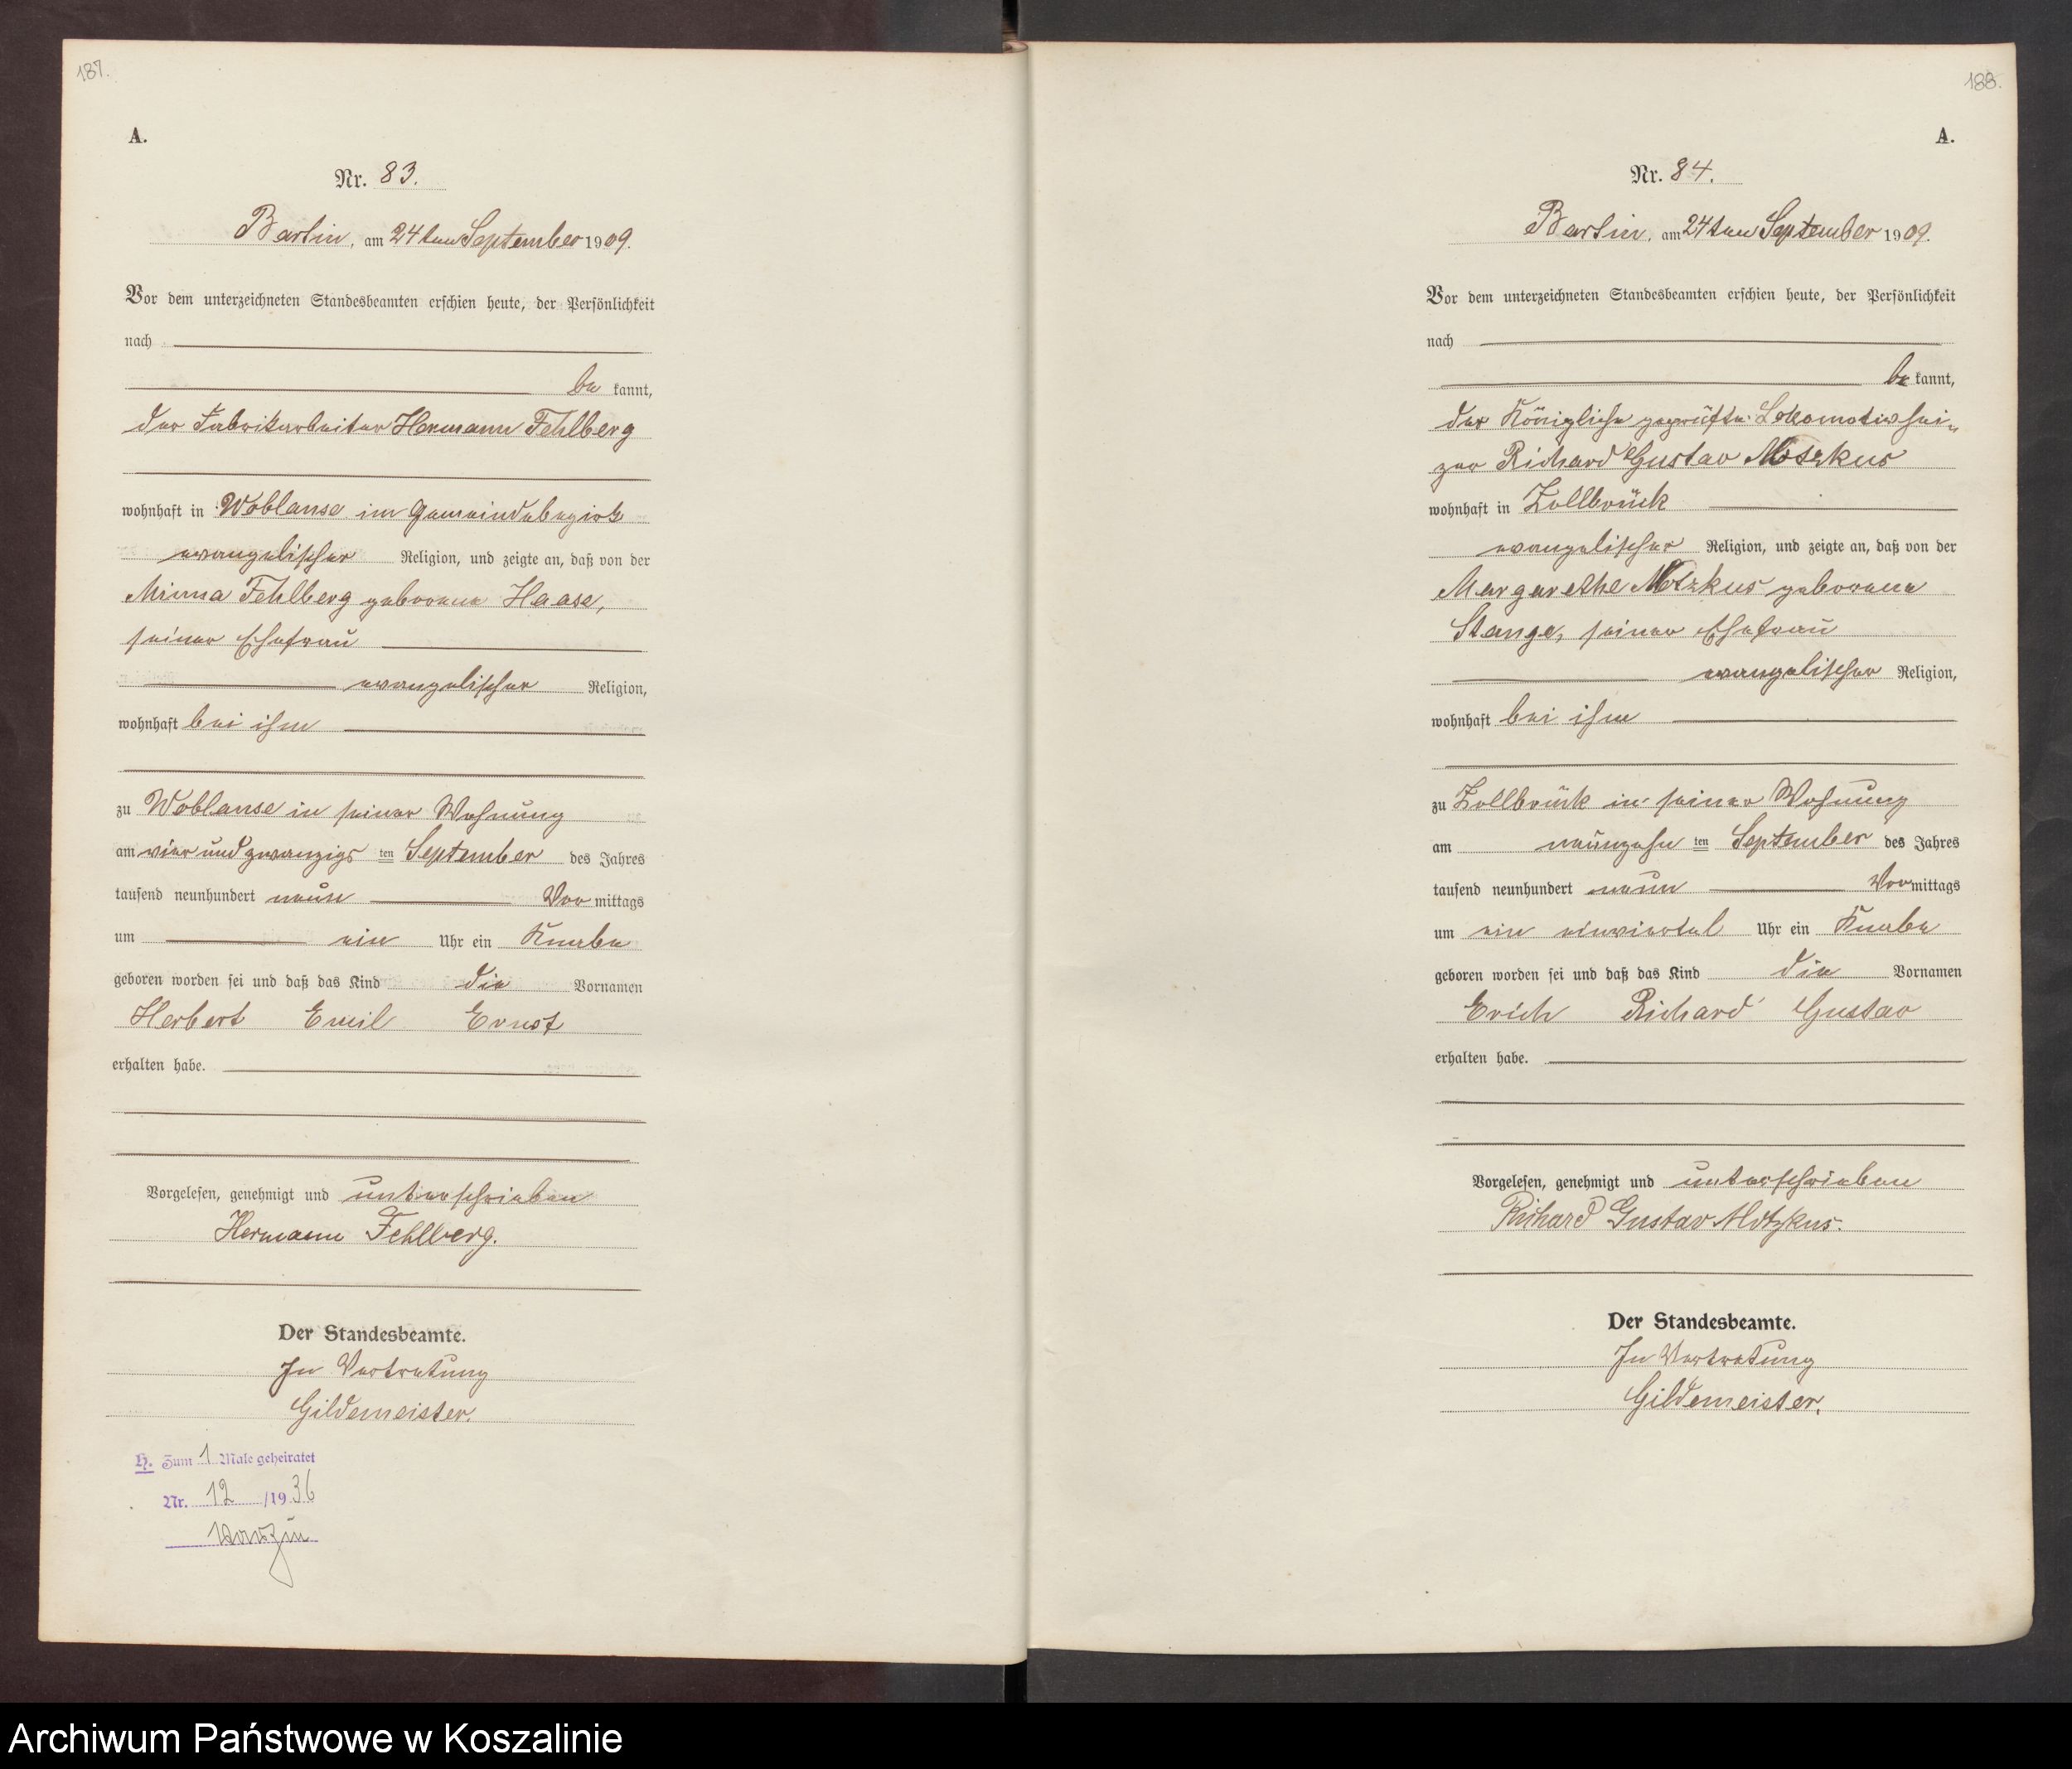 187.
A.
Nr. 83.
Bartin, am 24ten September 1909.
Vor dem unterzeichneten Standesbeamten erschien heute, der Persönlichkeit
nach
be kannt,
der Fabrikarbeiter Hermann Fehlberg
wohnhaft in Woblanse im Gemeindebezirk
evangelischer Religion, und zeigte an, daß von der
Minna Fehlberg geborene Haase,
seiner Ehefrau
evangelischer Religion,
wohnhaft bei ihm
zu Woblanse in seiner Wohnung
am vier und zwanzigs ten September des Jahres
tausend neunhundert neun Vor mittags
um ein Uhr ein Knabe
geboren worden sei und daß das Kind die Vornamen
Herbert Emil Ernst
erhalten habe.
Vorgelesen, genehmigt und unterschrieben
Hermann Fehlberg.
Der Standesbeamte.
In Vertretung
Gildemeister.
H. Zum 1 Male geheiratet
Nr. 12 /1936
Varzin
188.
A.
Nr. 84.
Bartin, am 24ten September 1909.
Vor dem unterzeichneten Standesbeamten erschien heute, der Persönlichkeit
nach
be kannt,
der Königliche geprüfte Lokomotivhei-
zer Richard Gustav Motzkus
wohnhaft in Zollbrück
evangelischer Religion, und zeigte an, daß von der
Margarethe Motzkus geborene
Stange, seiner Ehefrau
evangelischer Religion,
wohnhaft bei ihm
zu Zollbrück in seiner Wohnung
am neunzehn ten September des Jahres
tausend neunhundert neun Vormittags
um ein einviertel Uhr ein Knabe
geboren worden sei und daß das Kind die Vornamen
Erich Richard Gustav
erhalten habe.
Vorgelesen, genehmigt und unterschrieben
Richard Gustav Motzkus.
Der Standesbeamte.
In Vertretung
Gildemeister.
Archiwum Państwowe w Koszalinie